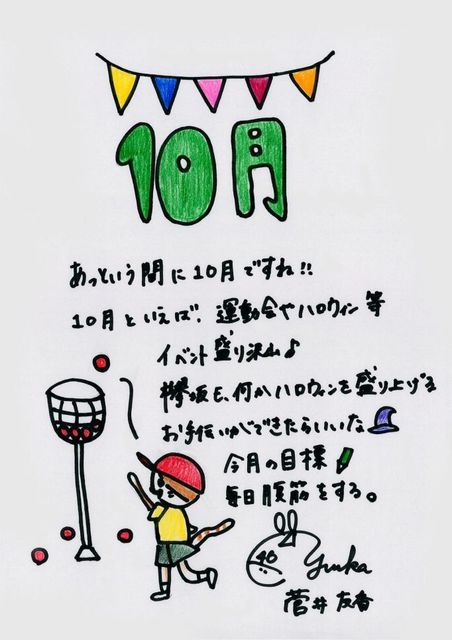 10月
あっという間に10月ですね!!
10月といえば、運動会やハロウィン等
イベント盛り沢山♪
欅坂も、何かハロウィンを盛り上げる
お手伝いができたらいいな
今月の目標
毎日腹筋をする。
46 Yuuka
菅井友香